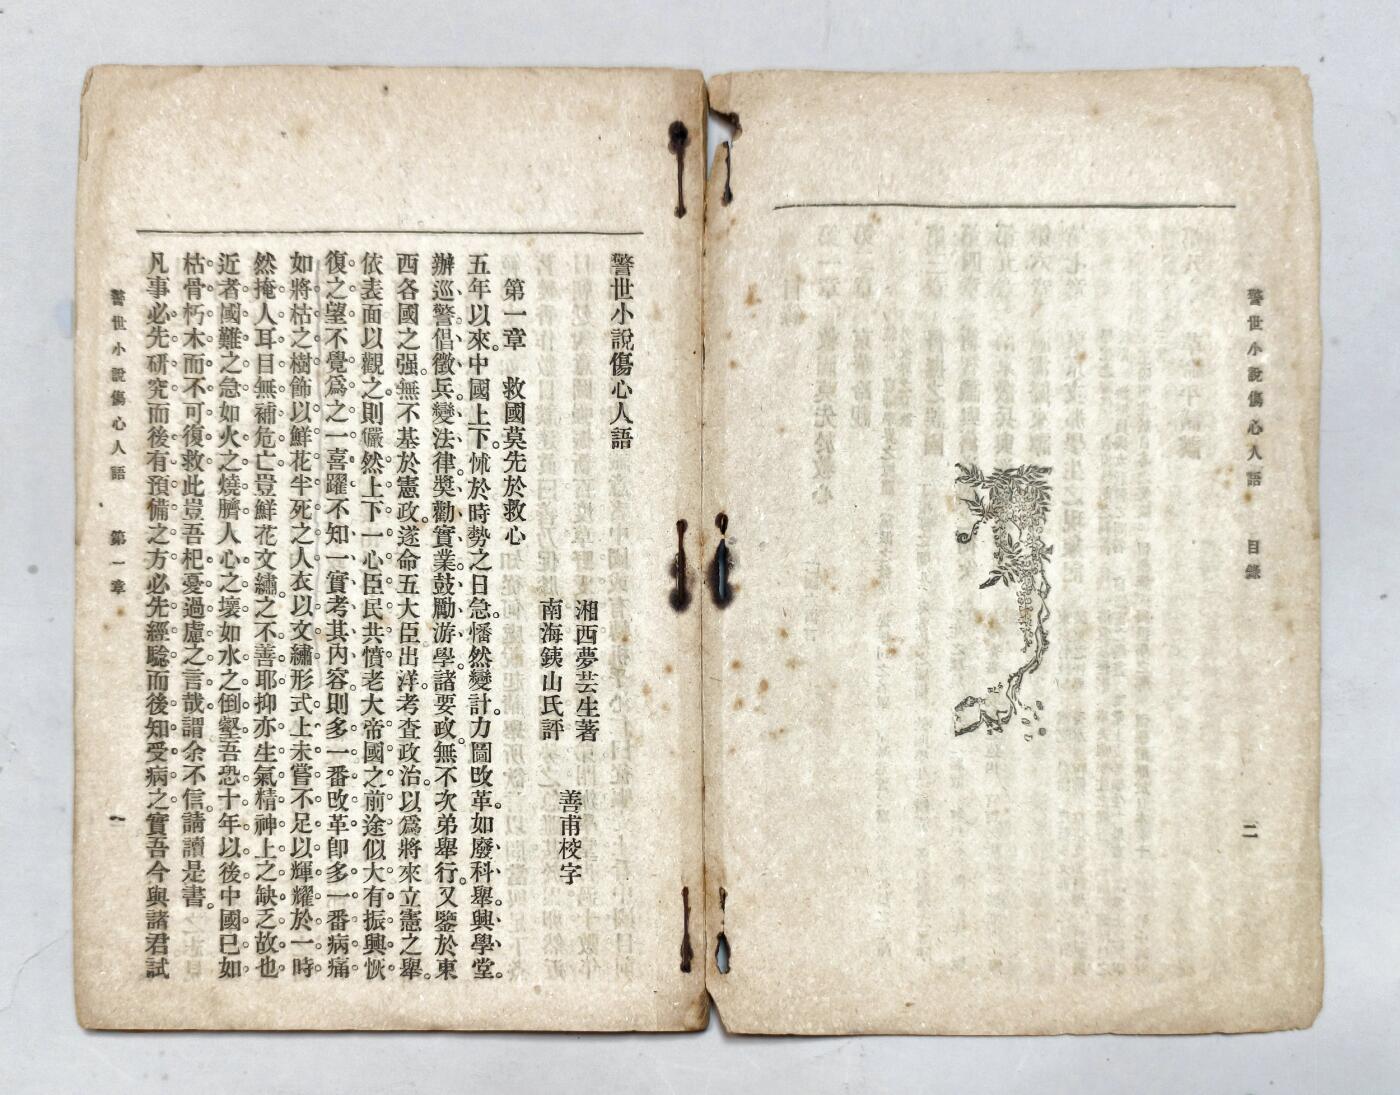 警世小說傷心人語 目錄 二
警世小說傷心人語
湘西夢芸生著
南海銕山氏評
善甫校字
第一章 救國莫先於救心
五年以來。中國上下。怵於時勢之日急。憣然變計。力圖改革。如廢科舉、興學堂、
辦巡警、倡徵兵、變法律、奬勸實業、鼓勵游學、諸要政。無不次弟舉行。又鑒於東
西各國之强。無不基於憲政。遂命五大臣出洋。考查政治。以爲將來立憲之舉。
依表面以觀之。則儼然上下一心。臣民共憤。老大帝國之前途。似大有振興恢
復之望。不覺爲之一喜躍。不知一實考其內容。則多一番改革。卽多一番病痛。
如將枯之樹。飾以鮮花。半死之人。衣以文繡。形式上未嘗不足以輝耀於一時。
然掩人耳目。無補危亡。豈鮮花文繡之不善耶。抑亦生氣精神上之缺乏故也。
近者國難之急。如火之燒臍。人心之壞。如水之倒壑。吾恐十年以後。中國已如
枯骨朽木而不可復救。此豈吾杞憂過慮之言哉。謂余不信。請讀是書。
凡事必先研究而後有預備之方。必先經驗而後知受病之實。吾今與諸君試
警世小說傷心人語 第一章 一